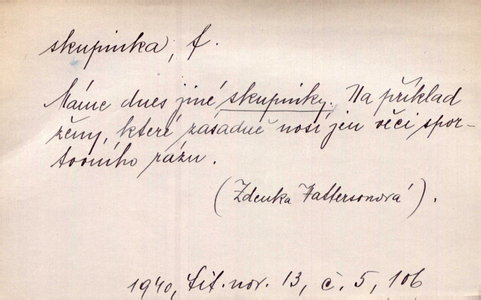 skupinka, f.
Máme dnes jiné skupinky. Na příklad
ženy, které zasadně nosí jen věci spor-
tovního rázu.
(Zdenka Pattersonová).
1940, Lit. nov. 13, č. 5, 106